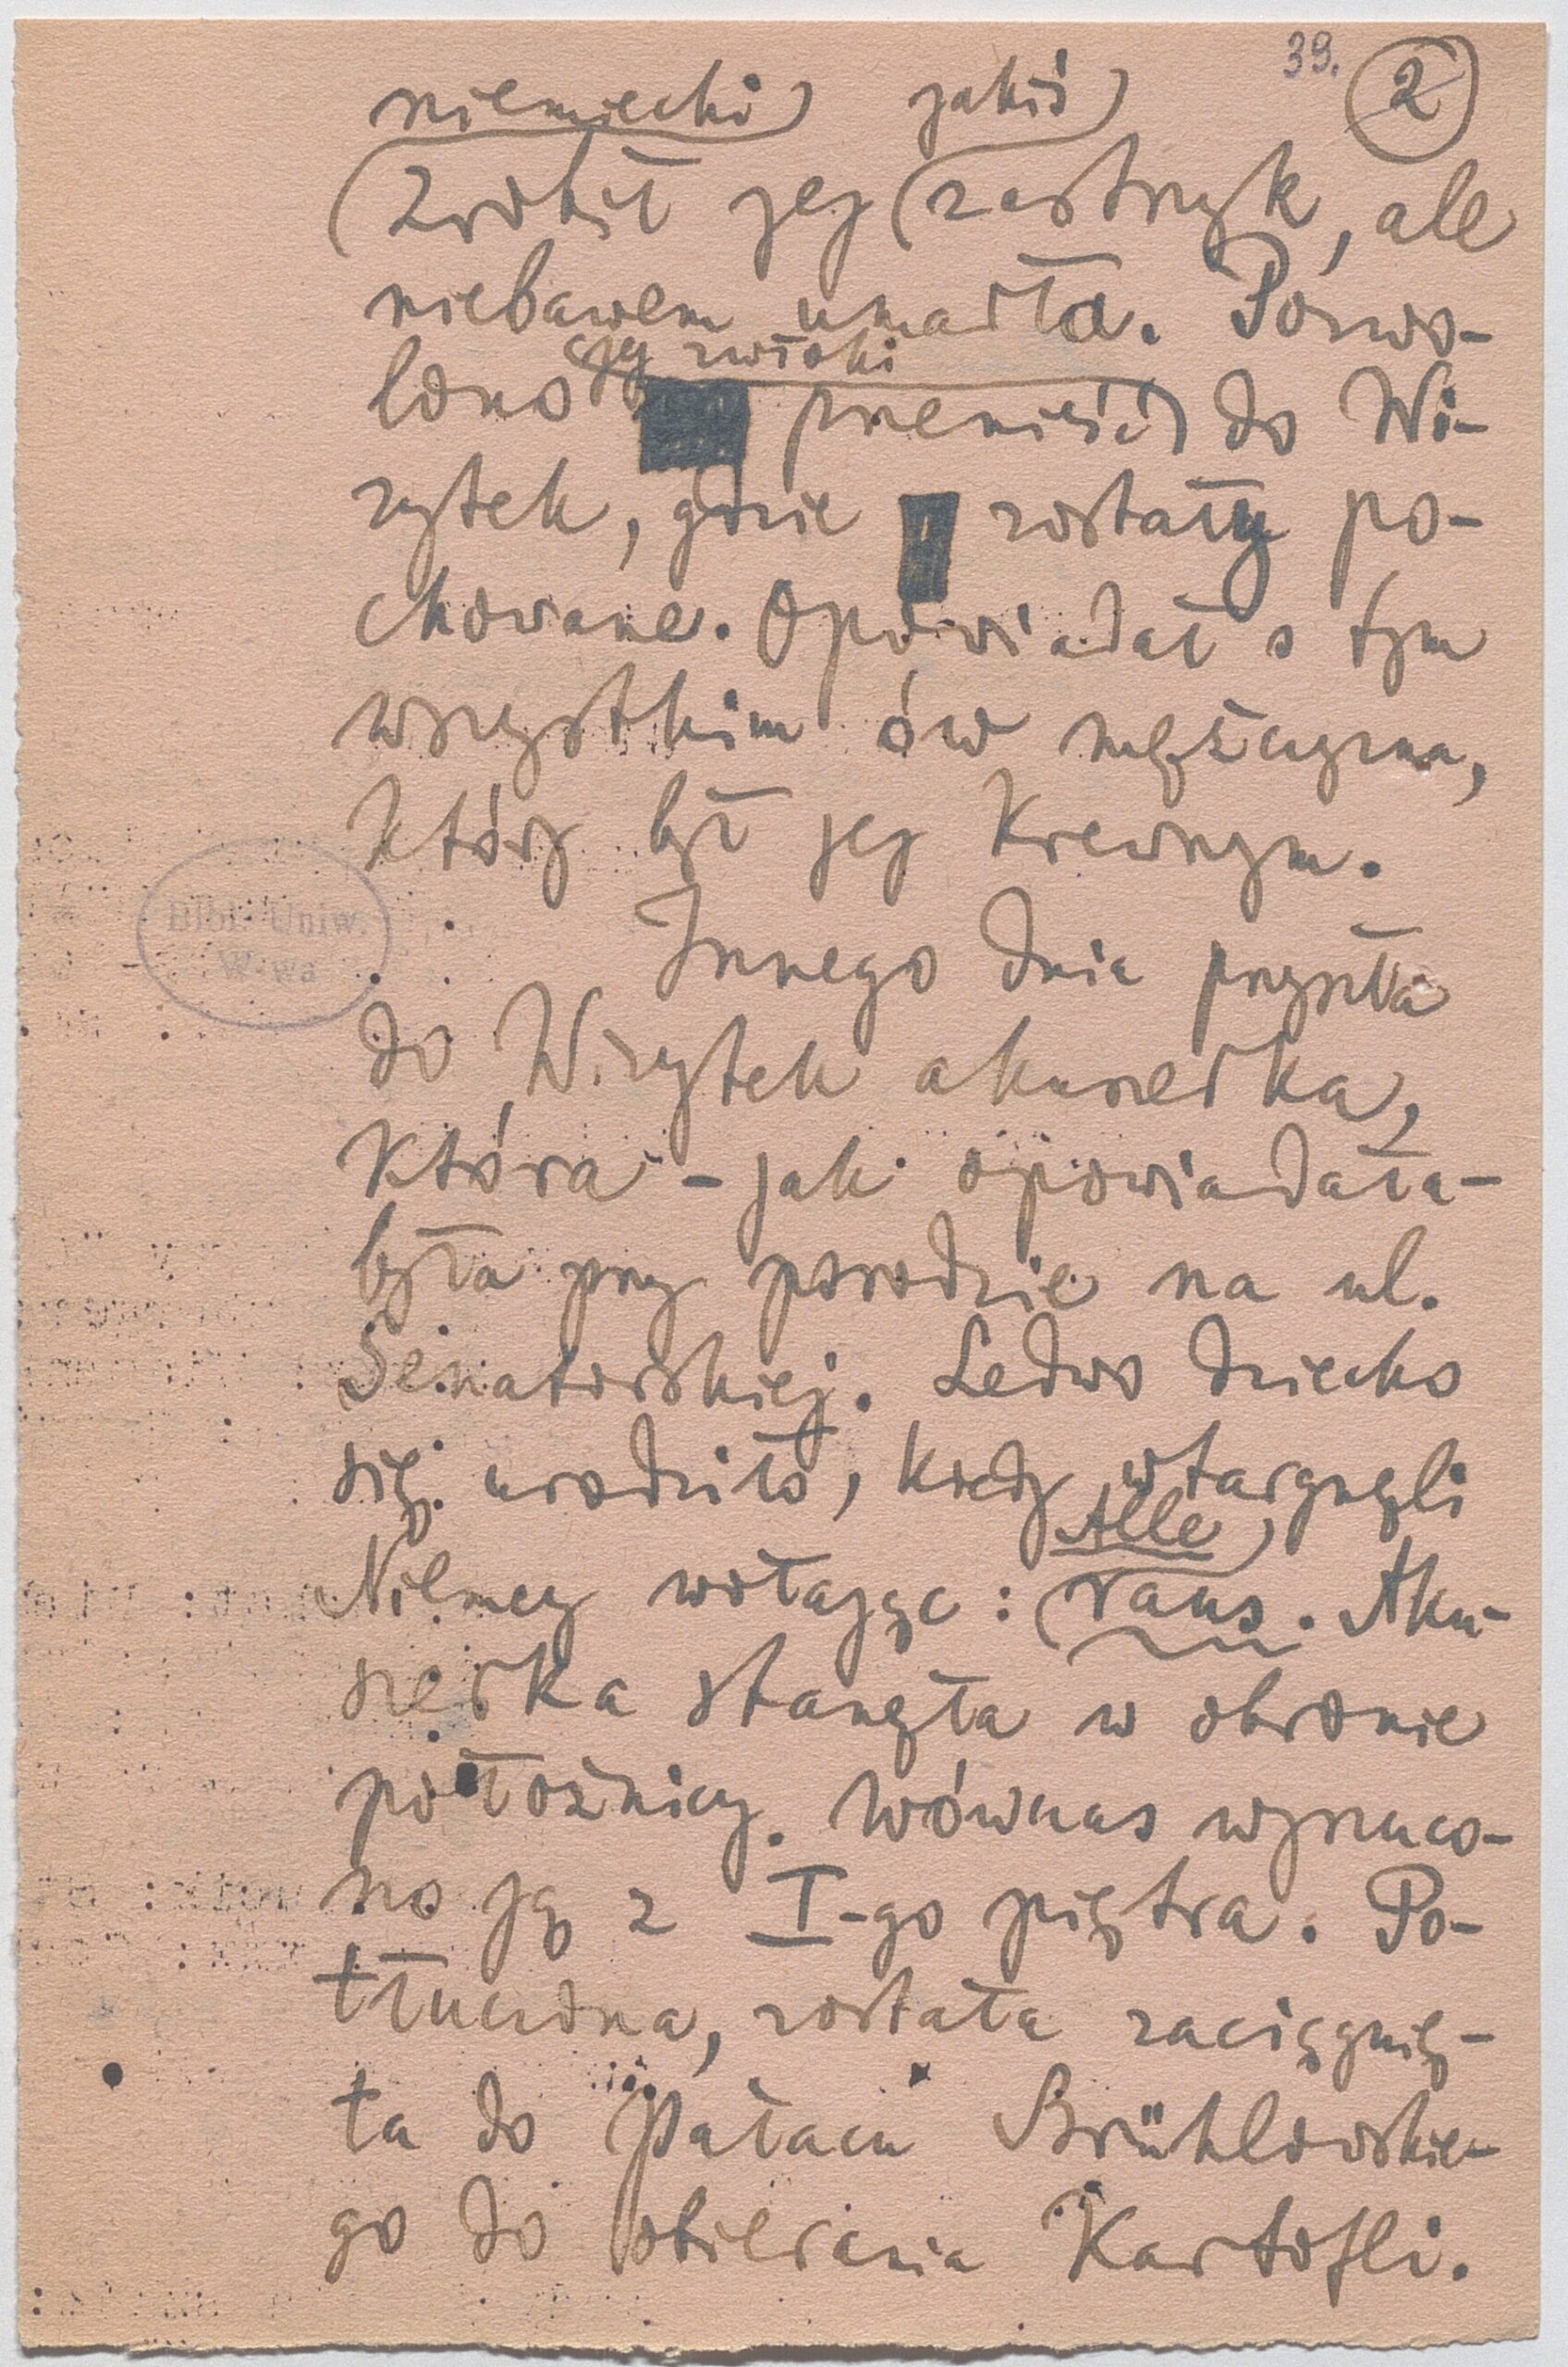 39. 2
niemiecki jakiś
zrobił jej zastrzyk, ale
niebawem umarła. Pozwo-
jej zwłoki
lono przenieść do Wi-
zytek, gdzie zostały po-
chowane. Opowiadał o tym
wszystkim ów mężczyzna,
który był jej krewnym.
Innego dnia przyszła
do Wizytek akuszerka,
która – jak opowiadała –
była przy porodzie na ul.
Senatorskiej. Ledwo dziecko
się urodziło, kiedy wtargnęli
Alle
Niemcy wołając: raus. Aku-
szerka stanęła w obronie
położnicy. Wówczas wyrzuco-
no ją z I-go piętra. Po-
tłuczona, została zaciągnię-
ta do Pałacu Brühlowskie-
go do obierania kartofli.
Bibl. Uniw.
W-wa